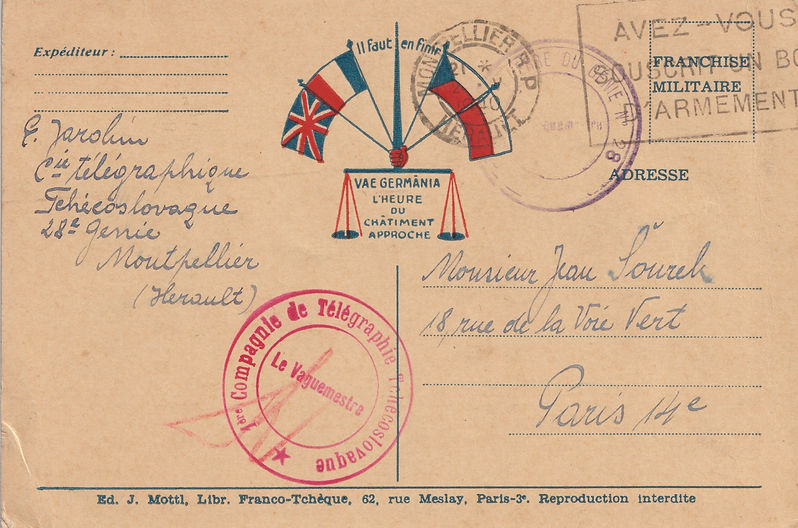 Expéditeur :
Il faut en finir
MONTPELLIER R.P
21
HERAULT
AVEZ-VOUS
SOUSCRIT UN BO
D'ARMEMENT
FRANCHISE
MILITAIRE
DU GÉNIE Nº 28
ADRESSE
VAE GERMĀNIA
L'HEURE
DU
CHÂTIMENT
APPROCHE
E. Jarolim
Cie télégraphique
Tchécoslovaque
28e Génie
Montpellier
(Herault)
Monsieur Jean Šourek
18, rue de la Voie Vert
Paris 14e
1ère Compagnie de Télégraphie Tchécoslovaque
Le Vaguemestre
Ed. J. Mottl, Libr. Franco-Tchèque, 62, rue Meslay, Paris-3e. Reproduction interdite